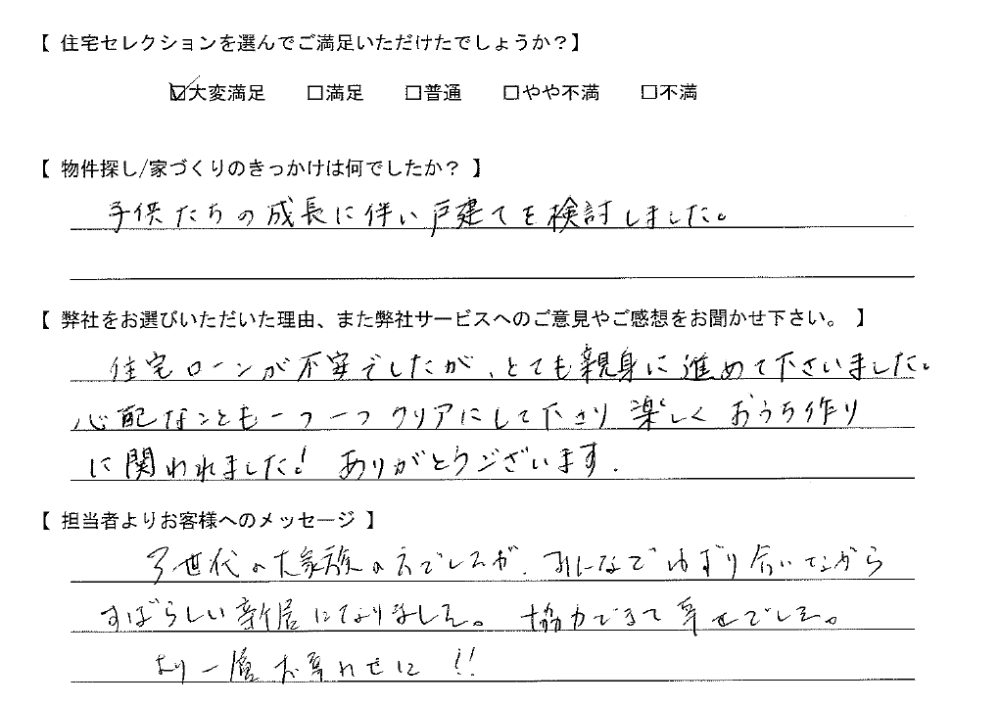 【 住宅セレクションを選んでご満足いただけたでしょうか？】
☑大変満足 □満足 □普通 □やや不満 □不満
【 物件探し/家づくりのきっかけは何でしたか？ 】
子供たちの成長に伴い戸建てを検討しました。
【 弊社をお選びいただいた理由、また弊社サービスへのご意見やご感想をお聞かせ下さい。 】
住宅ローンが不安でしたが、とても親身に進めて下さいました。
心配なことも一つ一つクリアにして下さり 楽しく おうち作り
に関われました! ありがとうございます.
【 担当者よりお客様へのメッセージ 】
3世代の大家族の方でしたが、みんなでゆずり合いながら
すばらしい新居になりました。 協力できて幸せでした。
より一層お幸せに!!